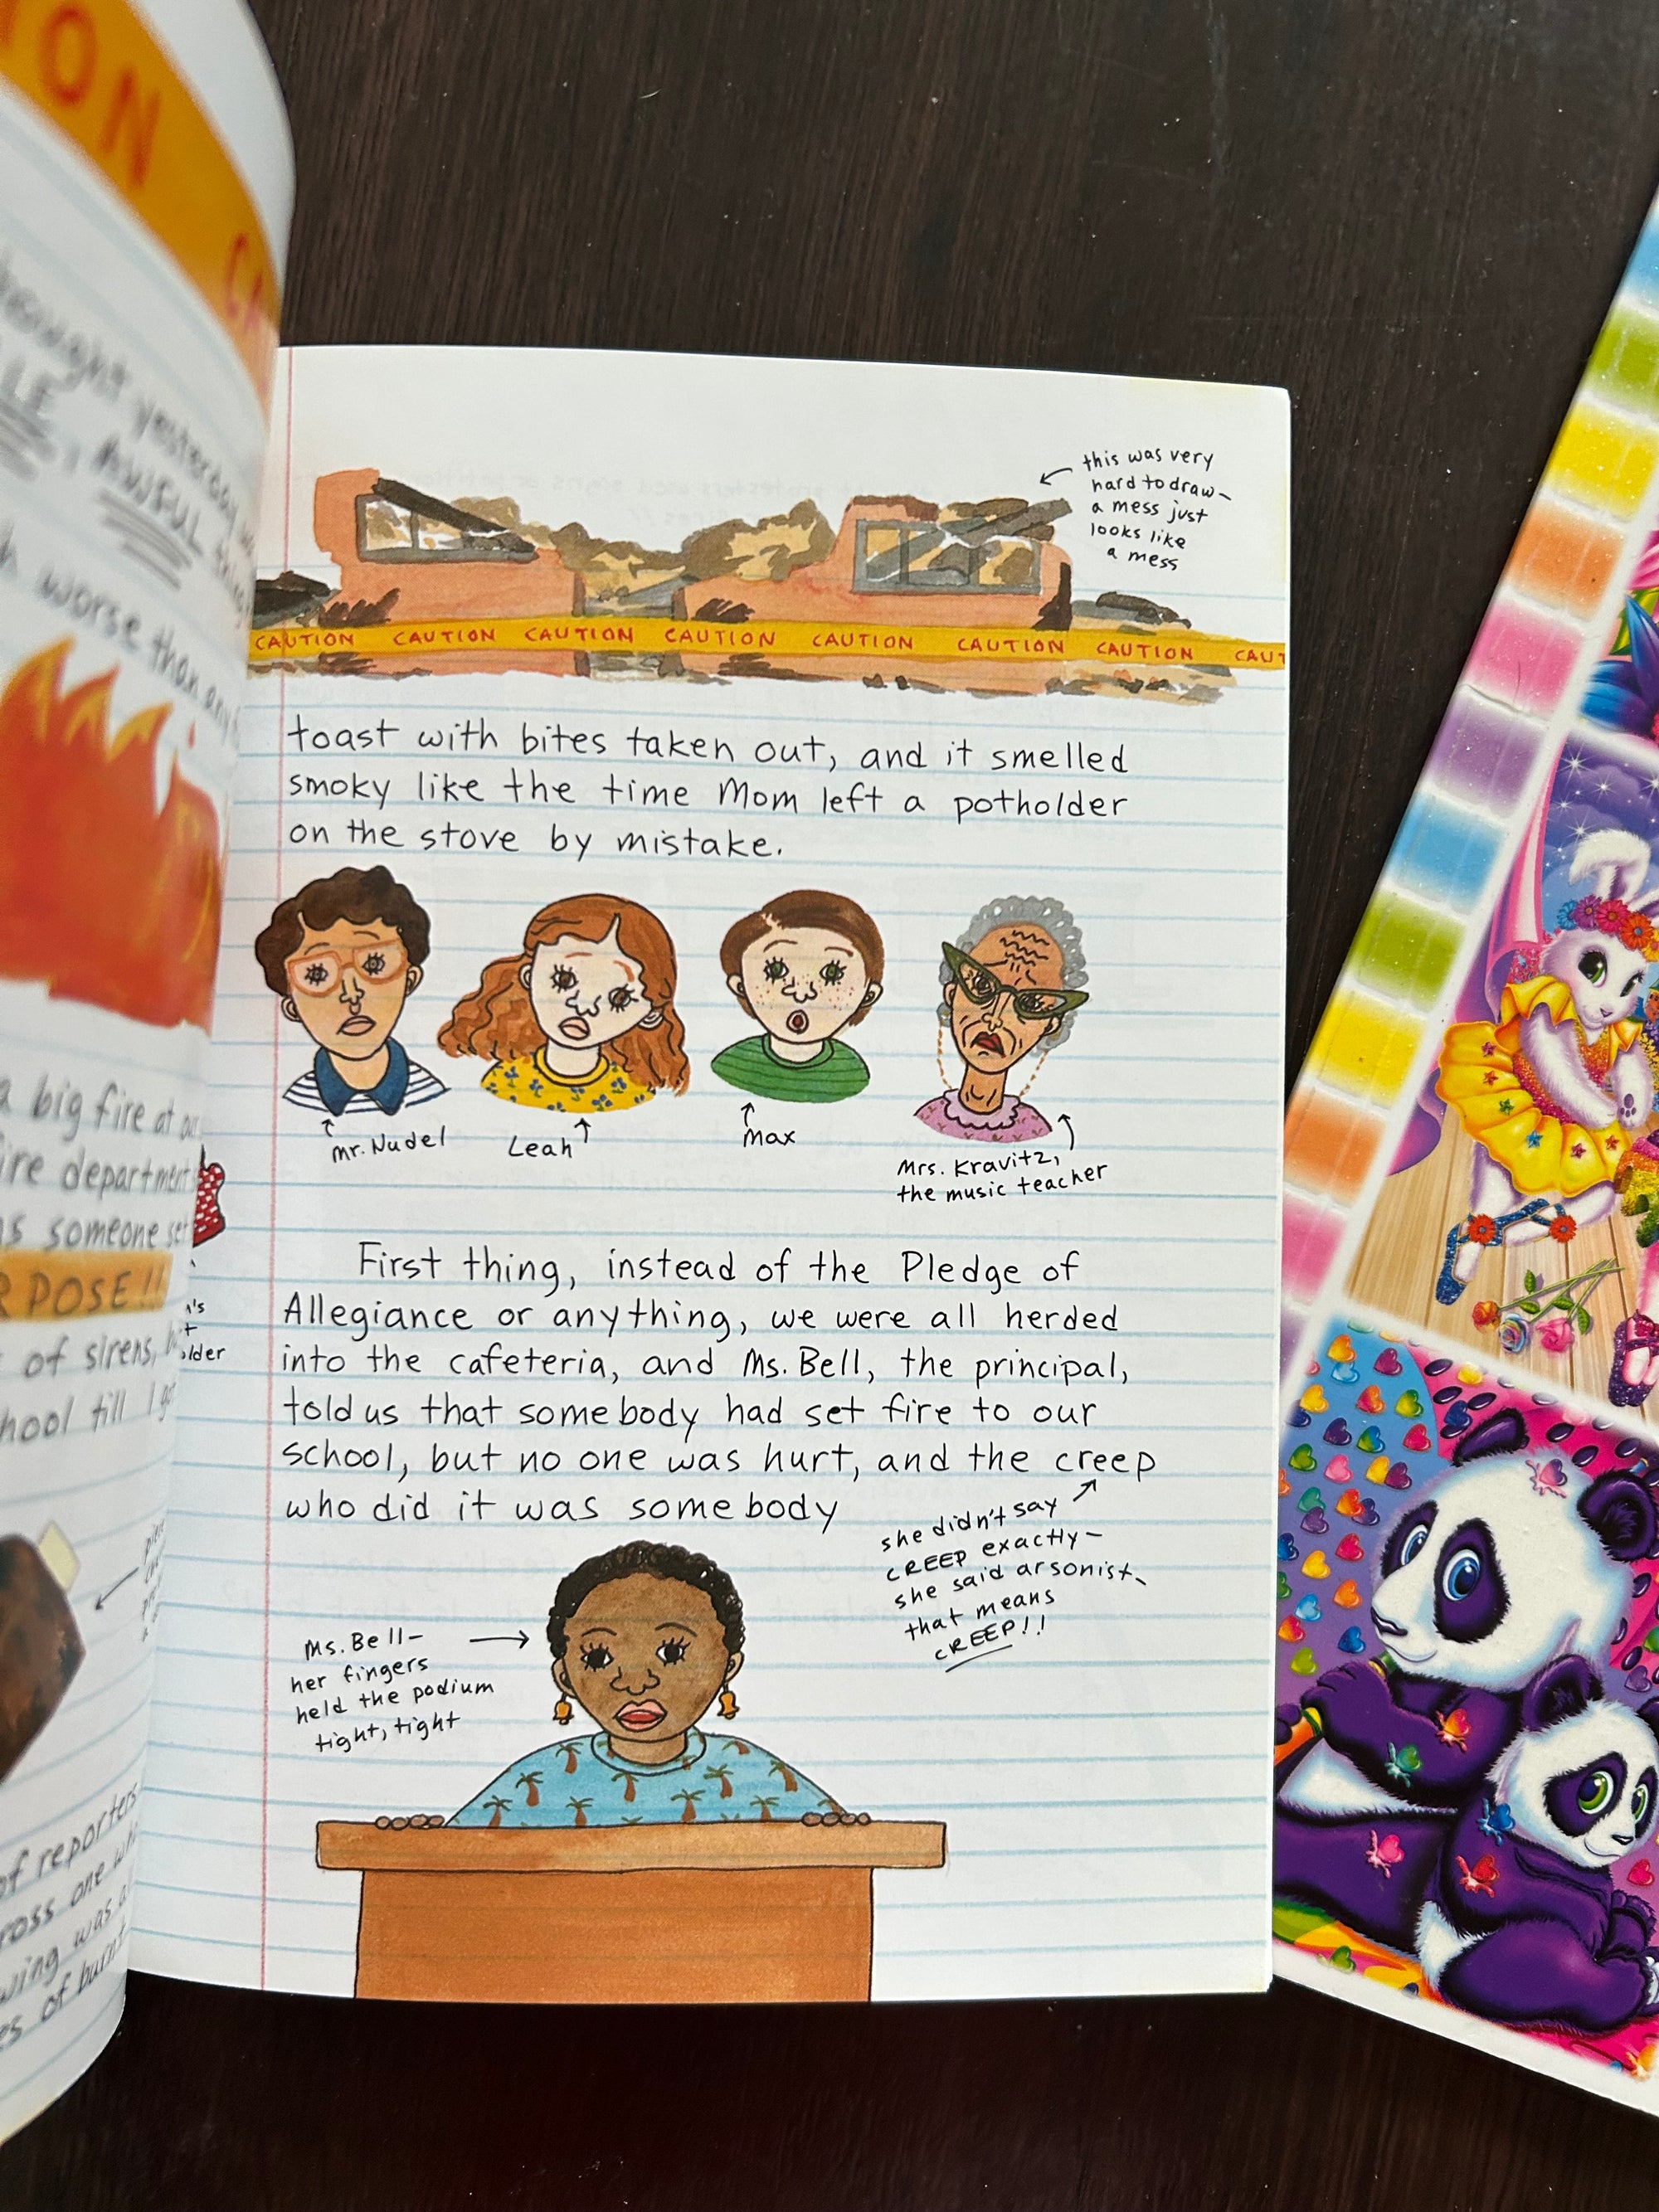 ION
CA
thought yesterday
LE, AWFUL
worse than any
a big fire at our
fire department
as someone set
RPOSE!!
of sirens,
hool till I go
of reporters
ross one wh
wing was a
es of burnt
older
this was very
hard to draw—
a mess just
looks like
a mess
CAUTION CAUTION CAUTION CAUTION CAUTION CAUTION CAUTION CAUT
toast with bites taken out, and it smelled
smoky like the time Mom left a potholder
on the stove by mistake.
Mr. Nudel
Leah
Max
Mrs. Kravitz,
the music teacher
First thing, instead of the Pledge of
Allegiance or anything, we were all herded
into the cafeteria, and Ms. Bell, the principal,
told us that somebody had set fire to our
school, but no one was hurt, and the creep
who did it was somebody
she didn't say
CREEP exactly—
she said arsonist—
that means
CREEP!!
Ms. Bell—
her fingers
held the podium
tight, tight